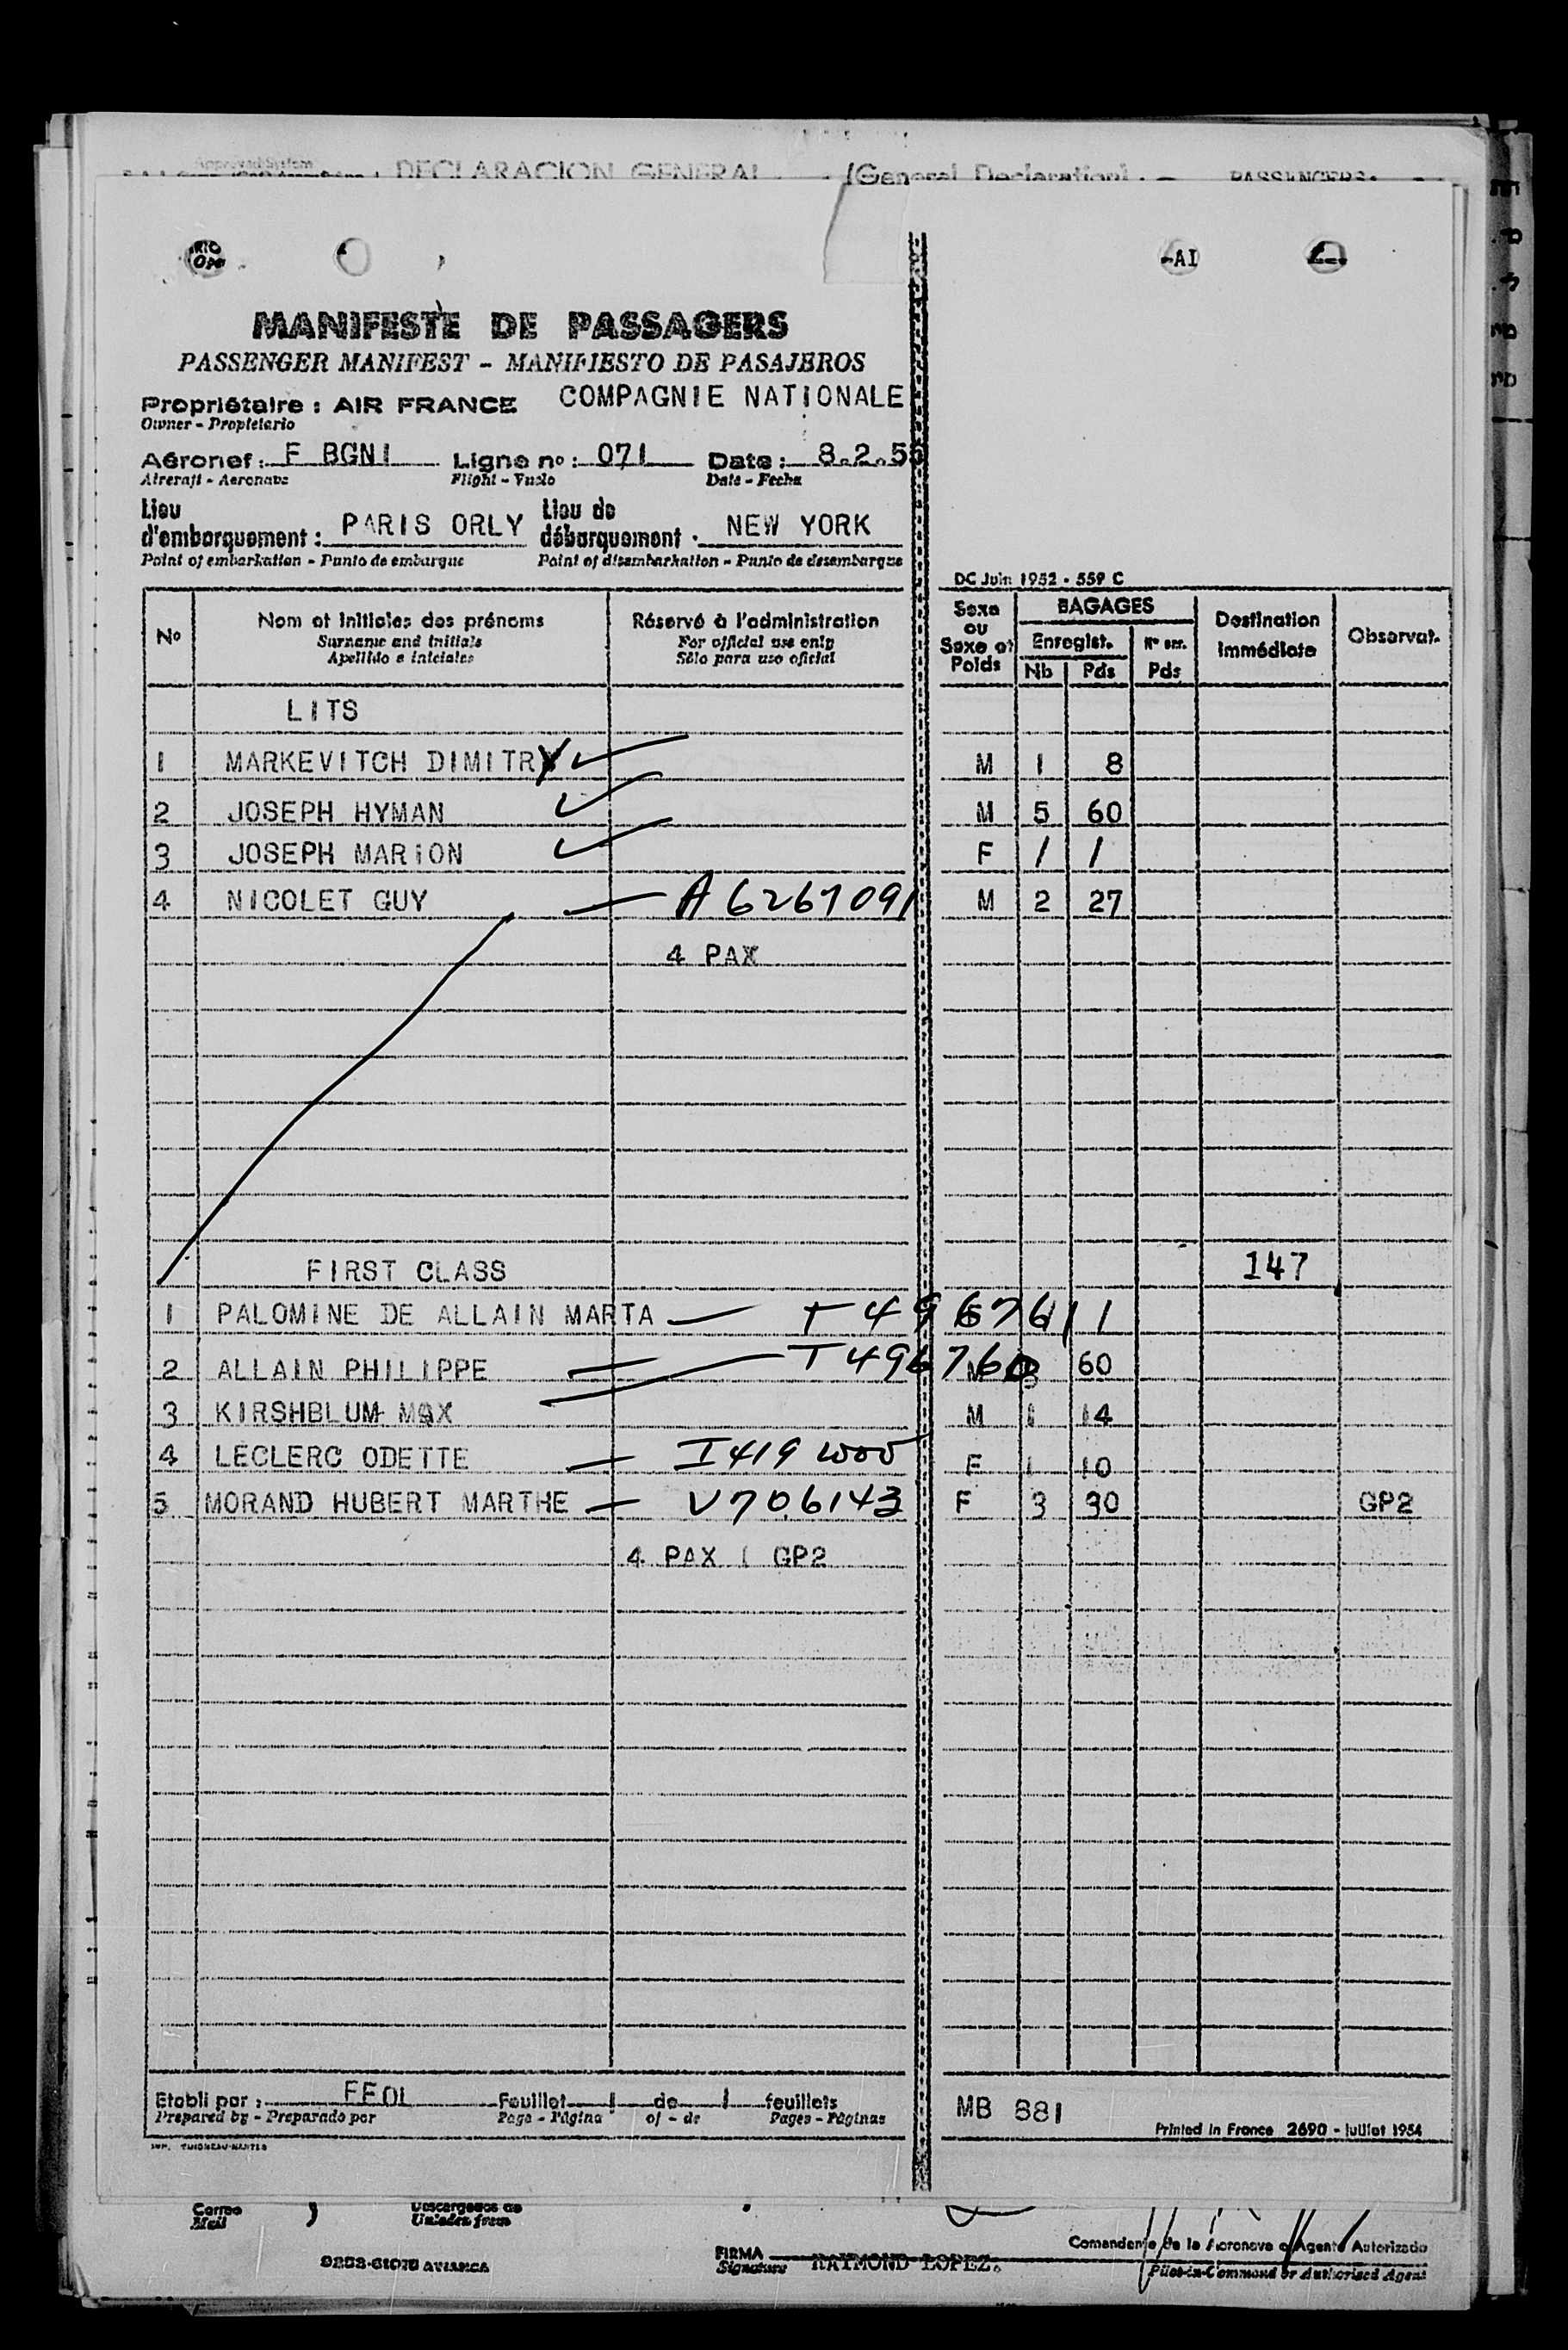 DECLARACION GENERAL (General Declaration) PASSENGERS
AI
MANIFESTE DE PASSAGERS
PASSENGER MANIFEST - MANIFIESTO DE PASAJEROS
Propriétaire : AIR FRANCE COMPAGNIE NATIONALE
Owner - Propietario
Aéronef : F BGNI Ligne no : 071 Date : 8.2.55
Aircraft - Aeronave Flight - Vuelo Date - Fecha
Lieu d'embarquement : PARIS ORLY Lieu de débarquement : NEW YORK
Point of embarkation - Punto de embarque Point of disembarkation - Punto de desembarque
DC Juin 1952 - 559 C
No Nom et initiales des prénoms Réservé à l'administration Sexe ou Sexe et Poids BAGAGES Destination immédiate Observat.
Surname and initials For official use only Enregist.
Apellido e iniciales Sólo para uso oficial Nb Pds Pds
LITS
1 MARKEVITCH DIMITRY M 1 8
2 JOSEPH HYMAN M 5 60
3 JOSEPH MARION F 1 1
4 NICOLET GUY A6267091 M 2 27
4 PAX
FIRST CLASS 147
1 PALOMINE DE ALLAIN MARTA T4967611
2 ALLAIN PHILIPPE M 60
3 KIRSHBLUM MAX M 1 14
4 LECLERC ODETTE F 1 10
5 MORAND HUBERT MARTHE V706143 F 3 30 GP2
4 PAX 1 GP2
Etabli par : FFOL Feuillet 1 de 1 feuillets MB 881
Prepared by - Preparado por Page - Página of - de Pages - Páginas
Printed in France 2690 - Juillet 1954
Correo Descargados de
Mail Unladen from
FIRMA RAYMOND LOPEZ. Comandante de la Aeronave o Agente Autorizado
Signature Pilot-in-Command or Authorised Agent